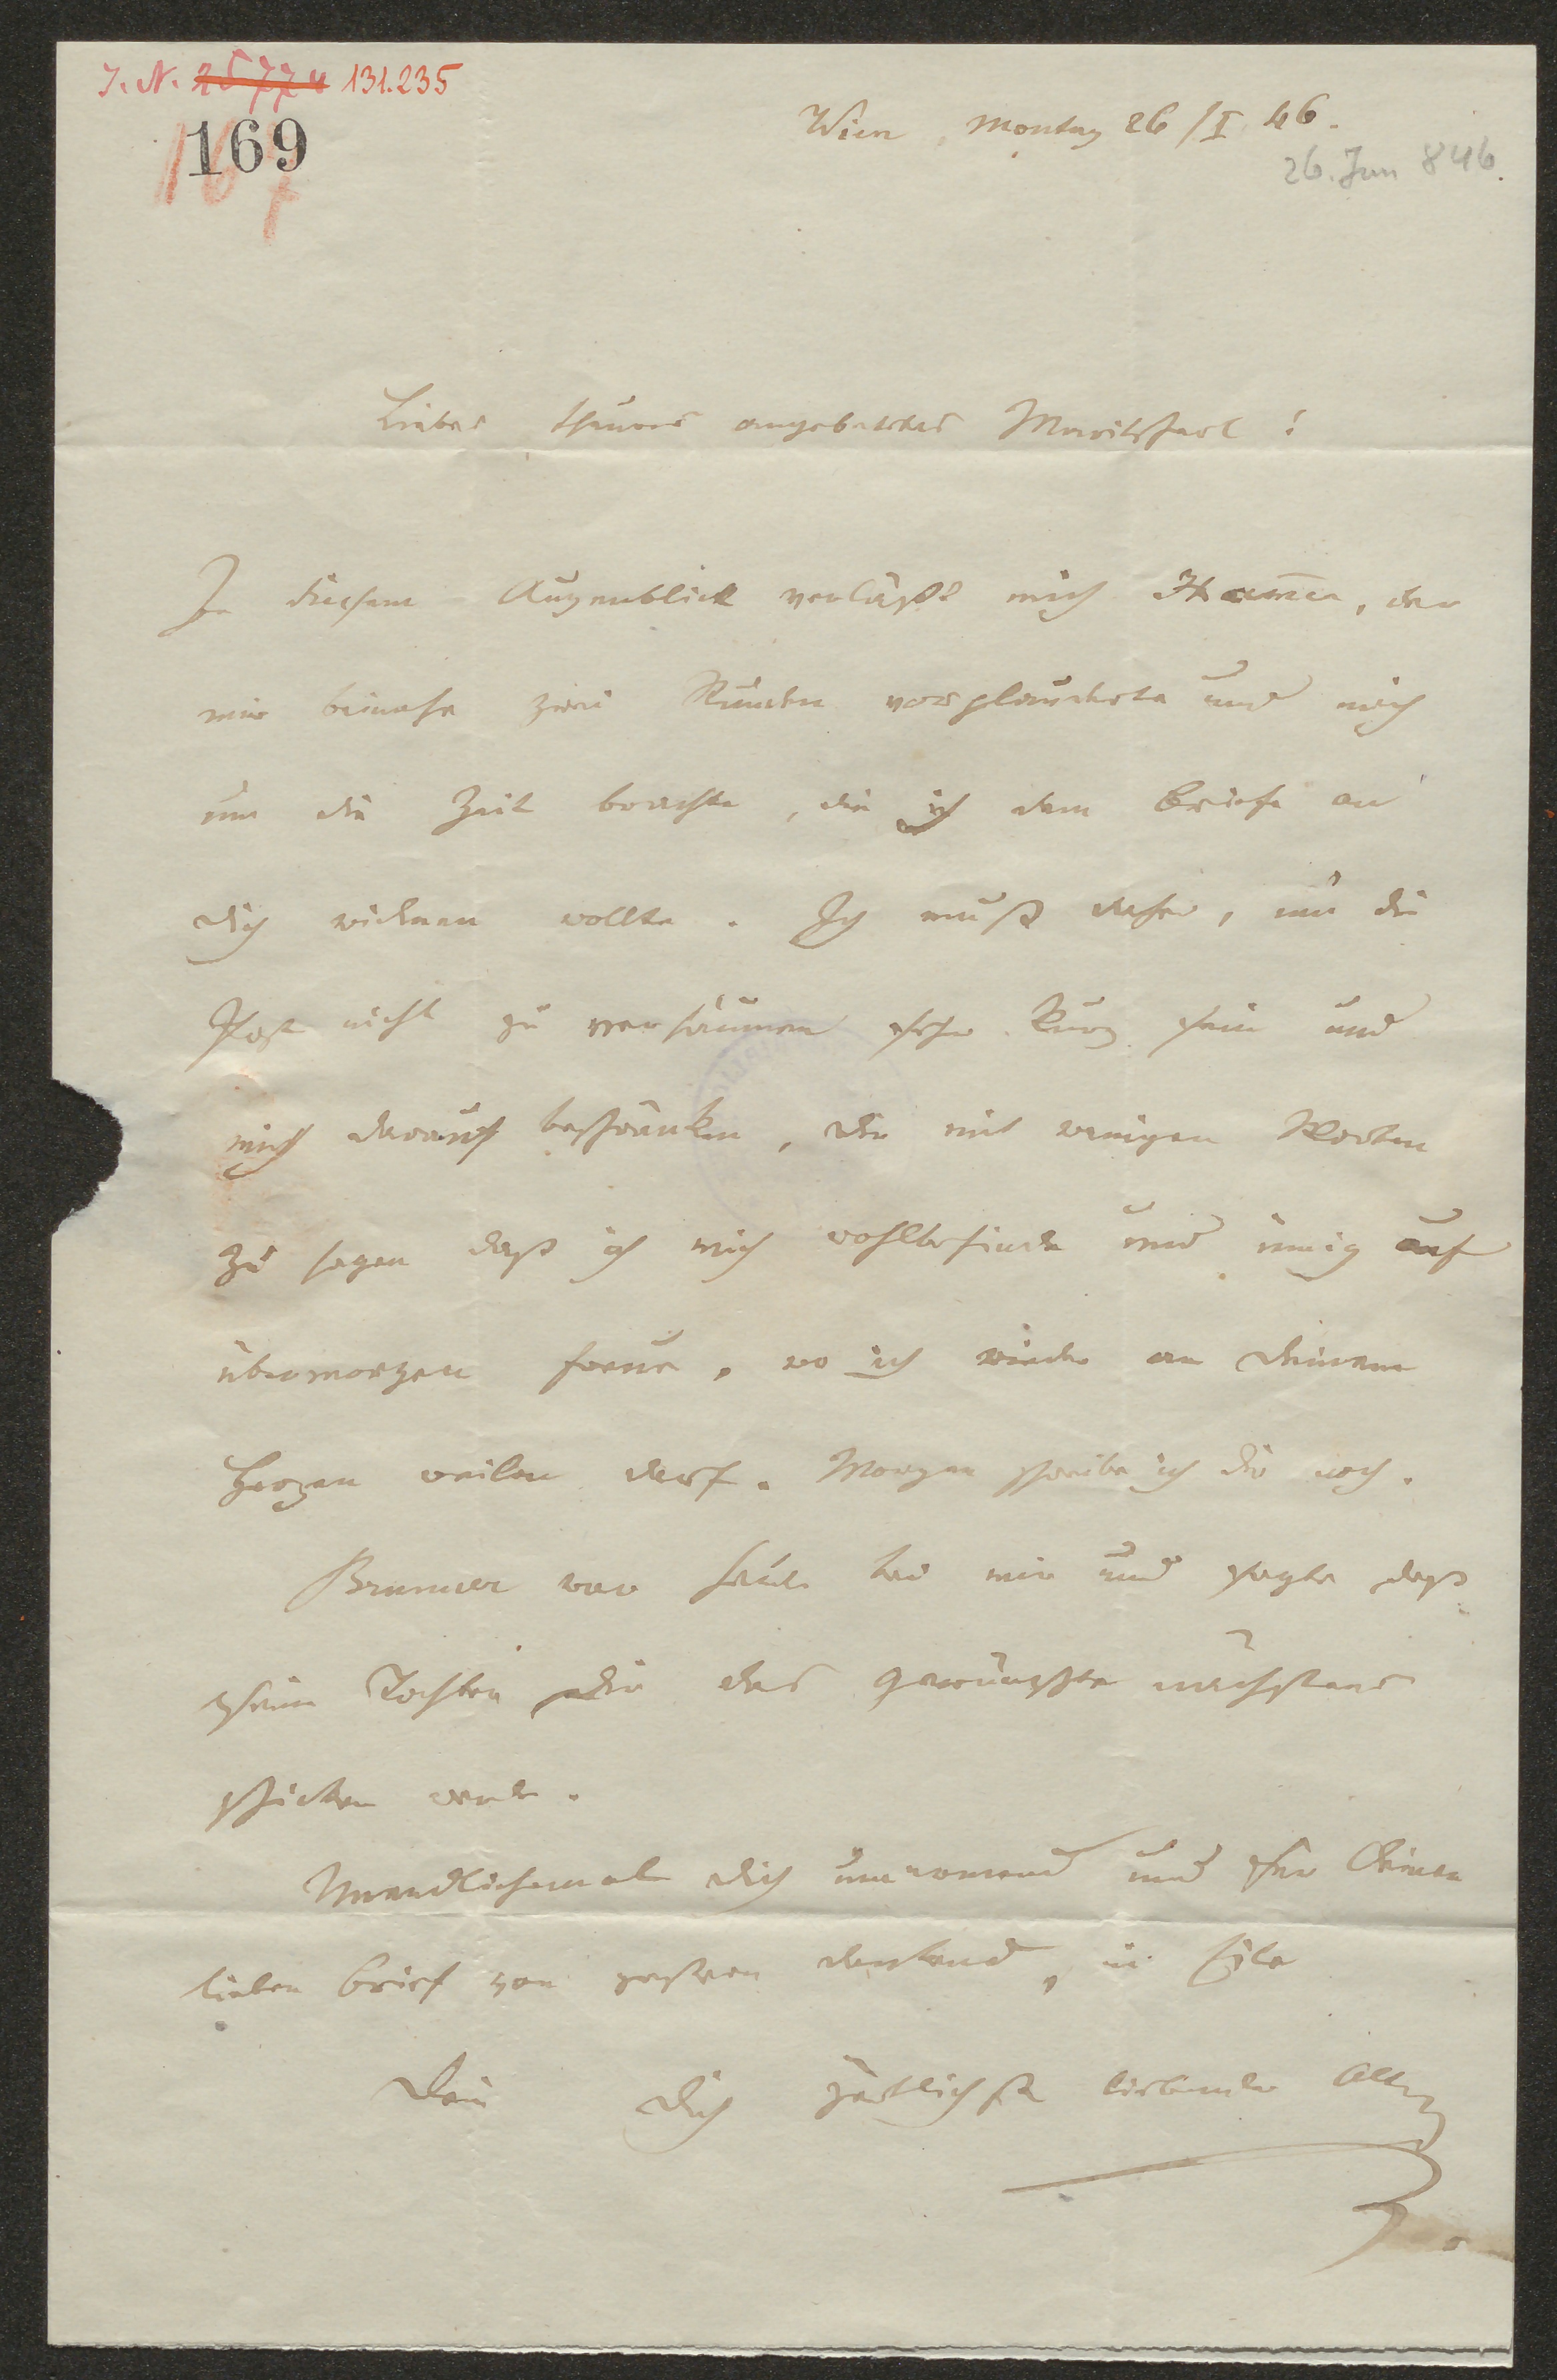 I. N. 25774 131.235
169
167
Wien, Montag 26/I 46.
26. Jan 846.
Liebes theures angebetetes Maritscherl!
In diesem Augenblick verläßt mich Ham̅er, der
mir beinahe zwei Stunden vorplauderte und mich
um die Zeit brachte, die ich dem Briefe an
dich widmen wollte. Ich muß daher, um die
Post nicht zu versäumen sehr kurz sein und
mich darauf beschränken, dir mit wenigen Worten
zu sagen daß ich mich wohlbefinde und innig auf
übermorgen freue, wo ich wieder an deinem
Herzen weilen darf. Morgen schreibe ich dir noch.
Brunner war heute bei mir und sagte daß
seine Tochter dir das gewünschte nächstens
schicken werde.
Unendlichemal dich umarmend und für Deinen
lieben Brief von gestern dankend, in Eile
Dein dich zärtlichst liebender